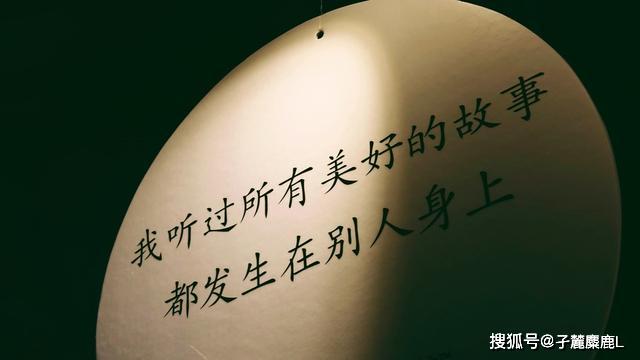 我听过所有美好的故事
都发生在别人身上
搜狐号@子麓麋鹿L